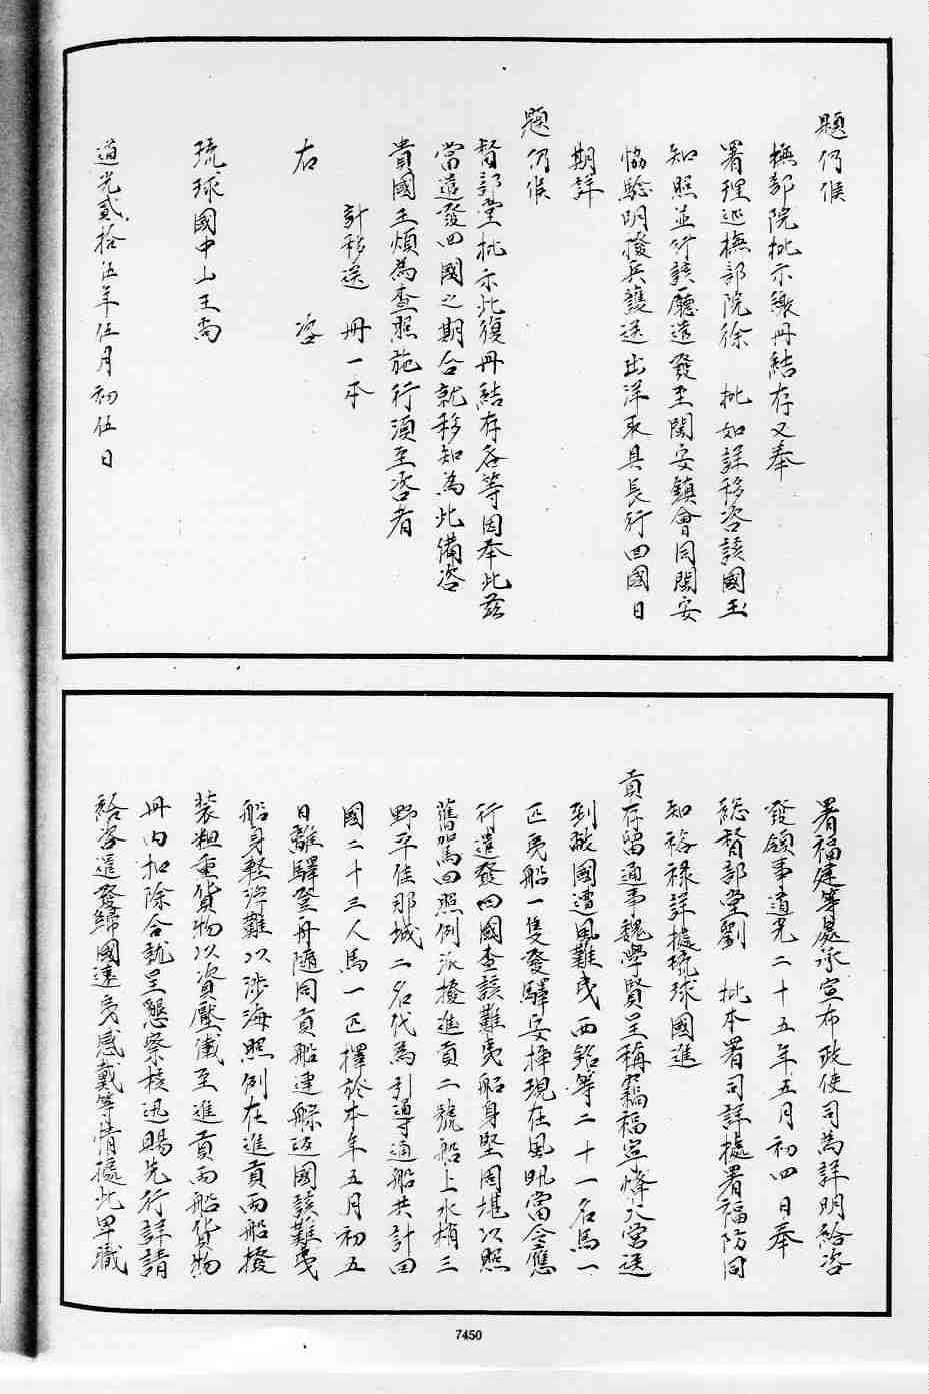 題仍候
撫部院批示繳冊結存又奉
署理巡撫部院徐　批如詳移咨該國王
知照並行該廳遣發至閩安鎮會同閩安
協驗明撥兵護送出洋取具長行回國日
期詳
題仍候
督部堂批示此復冊結存咨等因奉此茲
當遣發回國之期合就移知為此備咨
貴國王煩為查照施行須至咨者
計移送　冊一本
右　咨
琉球國中山王尚
道光貳拾伍年伍月初伍日
署福建等處承宣布政使司為詳明給咨
發領事道光二十五年五月初四日奉
總督部堂劉　批本署司詳據署福防同
知裕祿詳據琉球國進
貢存留通事魏學賢呈稱竊福宣烽火當送
到敝國遭風難夷西銘等二十一名馬一
匹夷船一隻發驛安揷現在風帆當令應
行遣發回國查該難夷船身堅固堪以照
舊駕回照例派撥進貢二號船上水梢三
野平佳那城二名代為引導通船共計回
國二十三人馬一匹擇於本年五月初五
日離驛登舟隨同貢船連䑸返國該難夷
船身輕浮難以涉海照例在進貢兩船撥
裝粗重貨物以資壓儎至進貢兩船貨物
冊內扣除合就呈懇察核迅賜先行詳請
給咨遣發歸國遠夷感戴等情據此卑職
7450